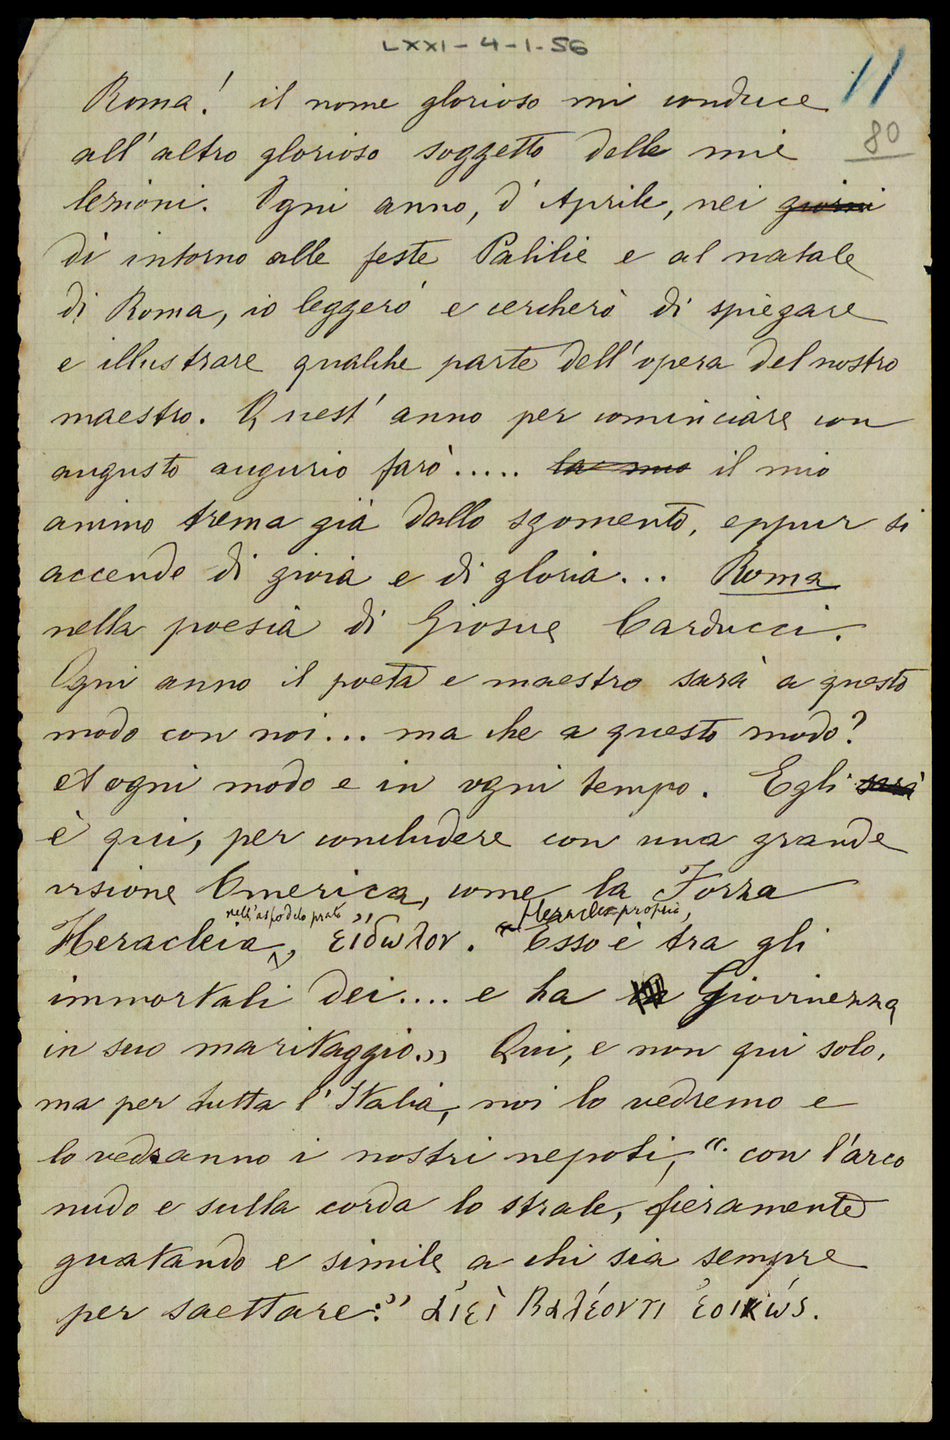 LXXI-4-1-56
11
80
Roma! il nome glorioso mi conduce
all'altro glorioso soggetto delle mie
lezioni. Ogni anno, d'Aprile, nei giorni
di intorno alle feste Palilie e al natale
di Roma, io leggerò e cercherò di spiegare
e illustrare qualche parte dell'opera del nostro
maestro. Quest'anno per cominciare con
augusto augurio farò..... la mia il mio
animo trema già dallo sgomento, eppur si
accende di gioia e di gloria... Roma
nella poesia di Giosue Carducci.
Ogni anno il poeta e maestro sarà a questo
modo con noi... ma che a questo modo?
A ogni modo e in ogni tempo. Egli sarà
è qui, per concludere con una grande
visione Omerica, come la Forza
nell'asfodelo prato Heracles proprio,
Heracleia, εἴδωλον. "Esso è tra gli
immortali dei.... e ha Giovinezza
in suo maritaggio.» Qui, e non qui solo,
ma per tutta l'Italia, noi lo vedremo e
lo vedranno i nostri nepoti, "con l'arco
nudo e sulla corda lo strale, fieramente
guatando e simile a chi sia sempre
per saettare:" ἀιεὶ βαλέοντι ἐοικώς.